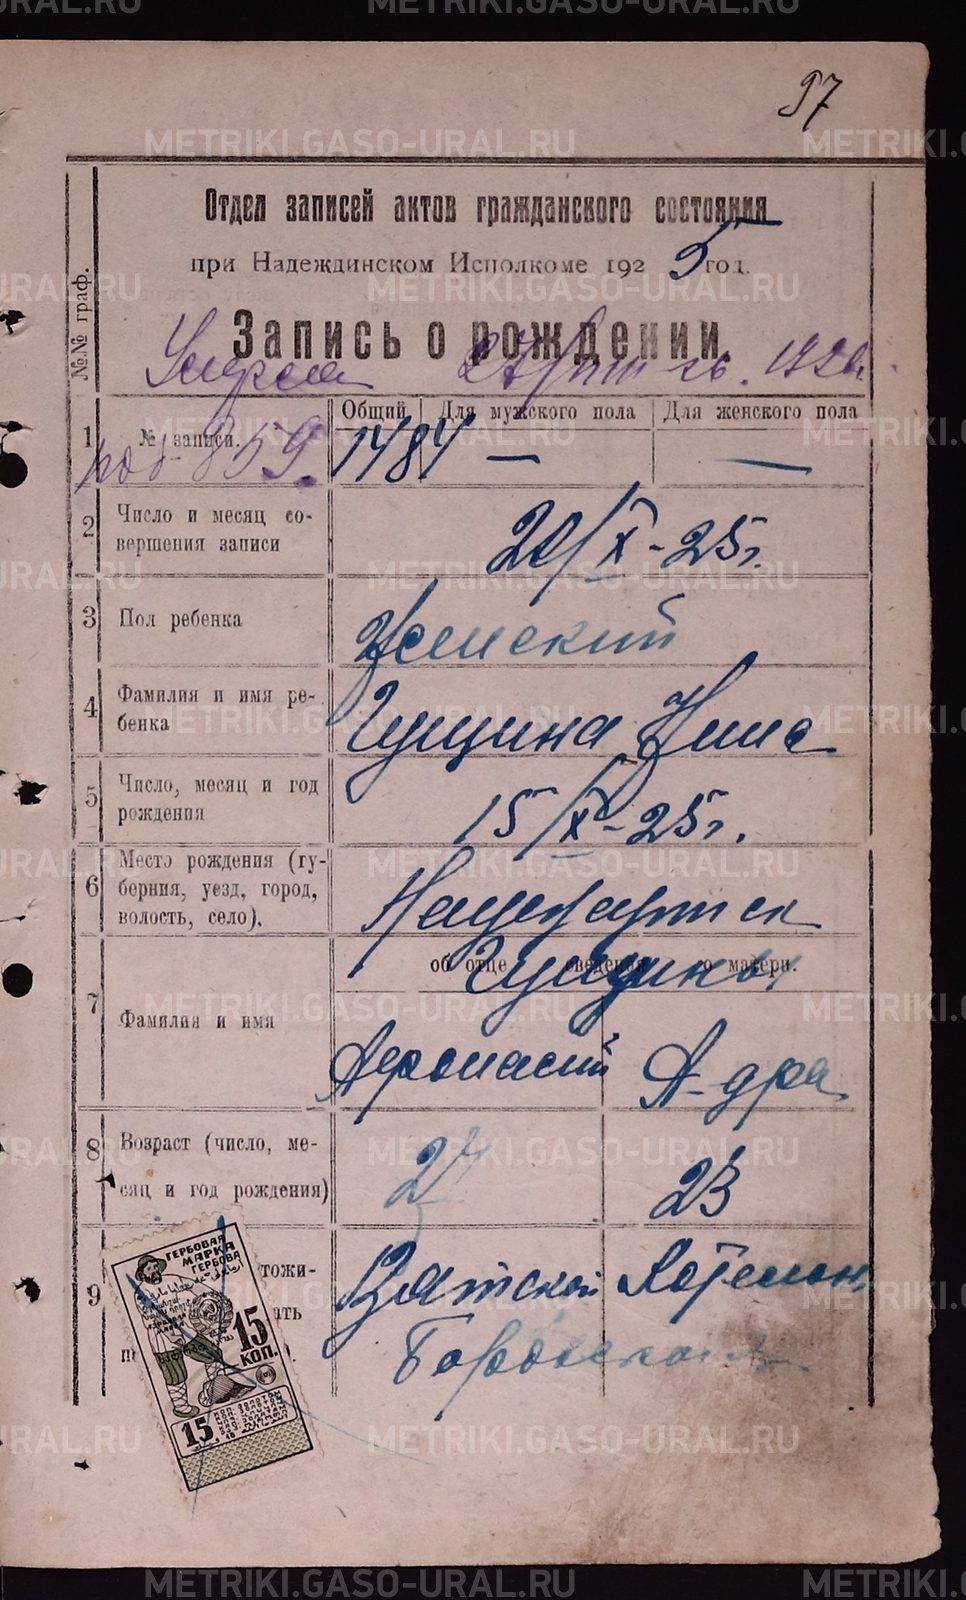 97
Отдел записей актов гражданского состояния
при Надеждинском Исполкоме 1925 год.
№№ граф.
Запись о рождении.
Умерла 27
Общий Для мужского пола Для женского пола
1 № записи. 1484 — —
под 859.
2 Число и месяц совершения записи
20/X-25г.
3 Пол ребенка
Женский
4 Фамилия и имя ребенка
Гущина Нина
5 Число, месяц и год рождения
15/X-25г.
6 Место рождения (губерния, уезд, город, волость, село).
об отце сведения о матери.
Гущины
7 Фамилия и имя
Афонасий А-дра
8 Возраст (число, месяц и год рождения)
27 23
9
Вятской Котельн.
ГЕРБОВАЯ
МАРКА
ГЕРБОВА
15
КОП.
15
METRIKI.GASO-URAL.RU